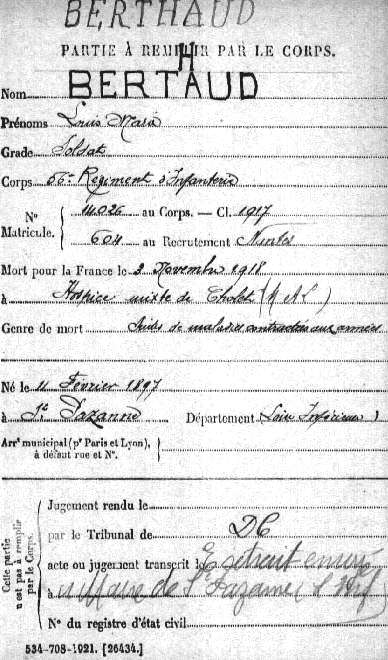 BERTHAUD
PARTIE À REMPLIR PAR LE CORPS.
H
Nom BERTAUD
Prénoms Louis Maria
Grade Soldat
Corps 66e Régiment d'Infanterie
No Matricule. 14026 au Corps. — Cl. 1917
604 au Recrutement Nantes
Mort pour la France le 3 Novembre 1918
à Hospice mixte de Cholet (M & L)
Genre de mort Suites de maladies contractées aux armées
Né le 11 Février 1897
à Ste Pazanne Département Loire Inférieure
Arrt municipal (pr Paris et Lyon),
à défaut rue et No.
Cette partie
n'est pas à remplir
par le Corps.
Jugement rendu le
par le Tribunal de DC
acte ou jugement transcrit le Extrait envoyé
à au Maire de Ste Pazanne (L Inf)
No du registre d'état civil
534-708-1921. [26434.]